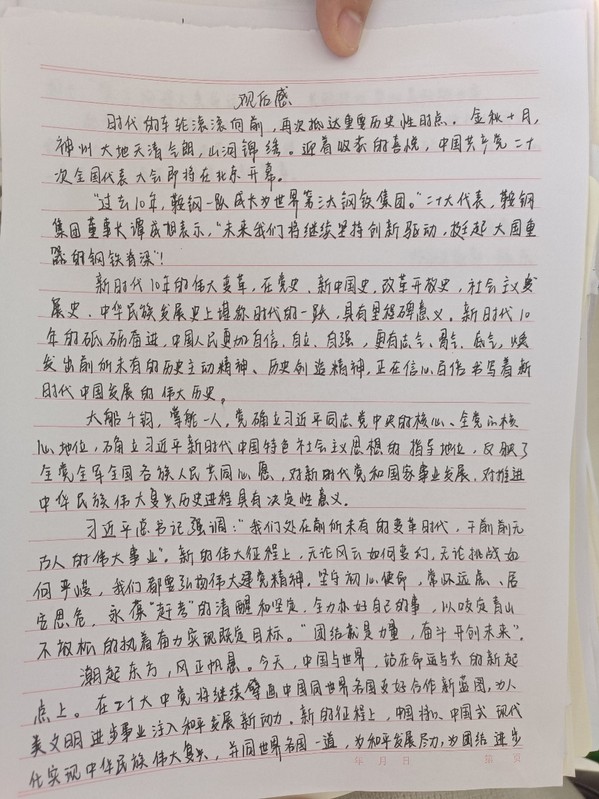 观后感
时代的车轮滚滚向前，再次抵达重要历史性时点。金秋十月，
神州大地天清气朗，山河锦绣。迎着收获的喜悦，中国共产党二十
次全国代表大会即将在北京开幕。
“过去10年，鞍钢一跃成长为世界第三大钢铁集团。”二十大代表，鞍钢
集团董事长谭成旭表示，“未来我们将继续坚持创新驱动，挺起大国重
器的钢铁脊梁”！
新时代10年的伟大变革，在党史、新中国史、改革开放史，社会主义发
展史、中华民族发展史上堪称时代的一跃，具有里程碑意义。新时代10
年的砥砺奋进，中国人民更加自信、自立、自强，更有志气、骨气、底气，焕
发出前所未有的历史主动精神、历史创造精神，正在信心百倍书写着新
时代中国发展的伟大历史。
大船千钧，掌舵一人，党确立习近平同志党中央的核心、全党的核
心地位，确立习近平新时代中国特色社会主义思想的指导地位，反映了
全党全军全国各族人民共同心愿，对新时代党和国家事业发展、对推进
中华民族伟大复兴历史进程具有决定性意义。
习近平总书记强调：“我们处在前所未有的变革时代，干前前无
古人的伟大事业”。新的伟大征程上，无论风云如何变幻，无论挑战如
何严峻，我们都要弘扬伟大建党精神，坚守初心使命，常怀远虑、居
安思危，永葆“赶考”的清醒和坚定，全力办好自己的事，以咬定青山
不放松的执着奋力实现既定目标。“团结就是力量，奋斗开创未来”。
潮起东方，风正帆悬。今天，中国与世界，站在命运与共的新起
点上。在二十大中党将继续擘画中国同世界各国友好合作新蓝图，为人
类文明进步事业注入和平发展新动力。新的征程上，中国将以中国式现代
化实现中华民族伟大复兴，并同世界各国一道，为和平发展尽力，为团结进步
年 月 日 第 页